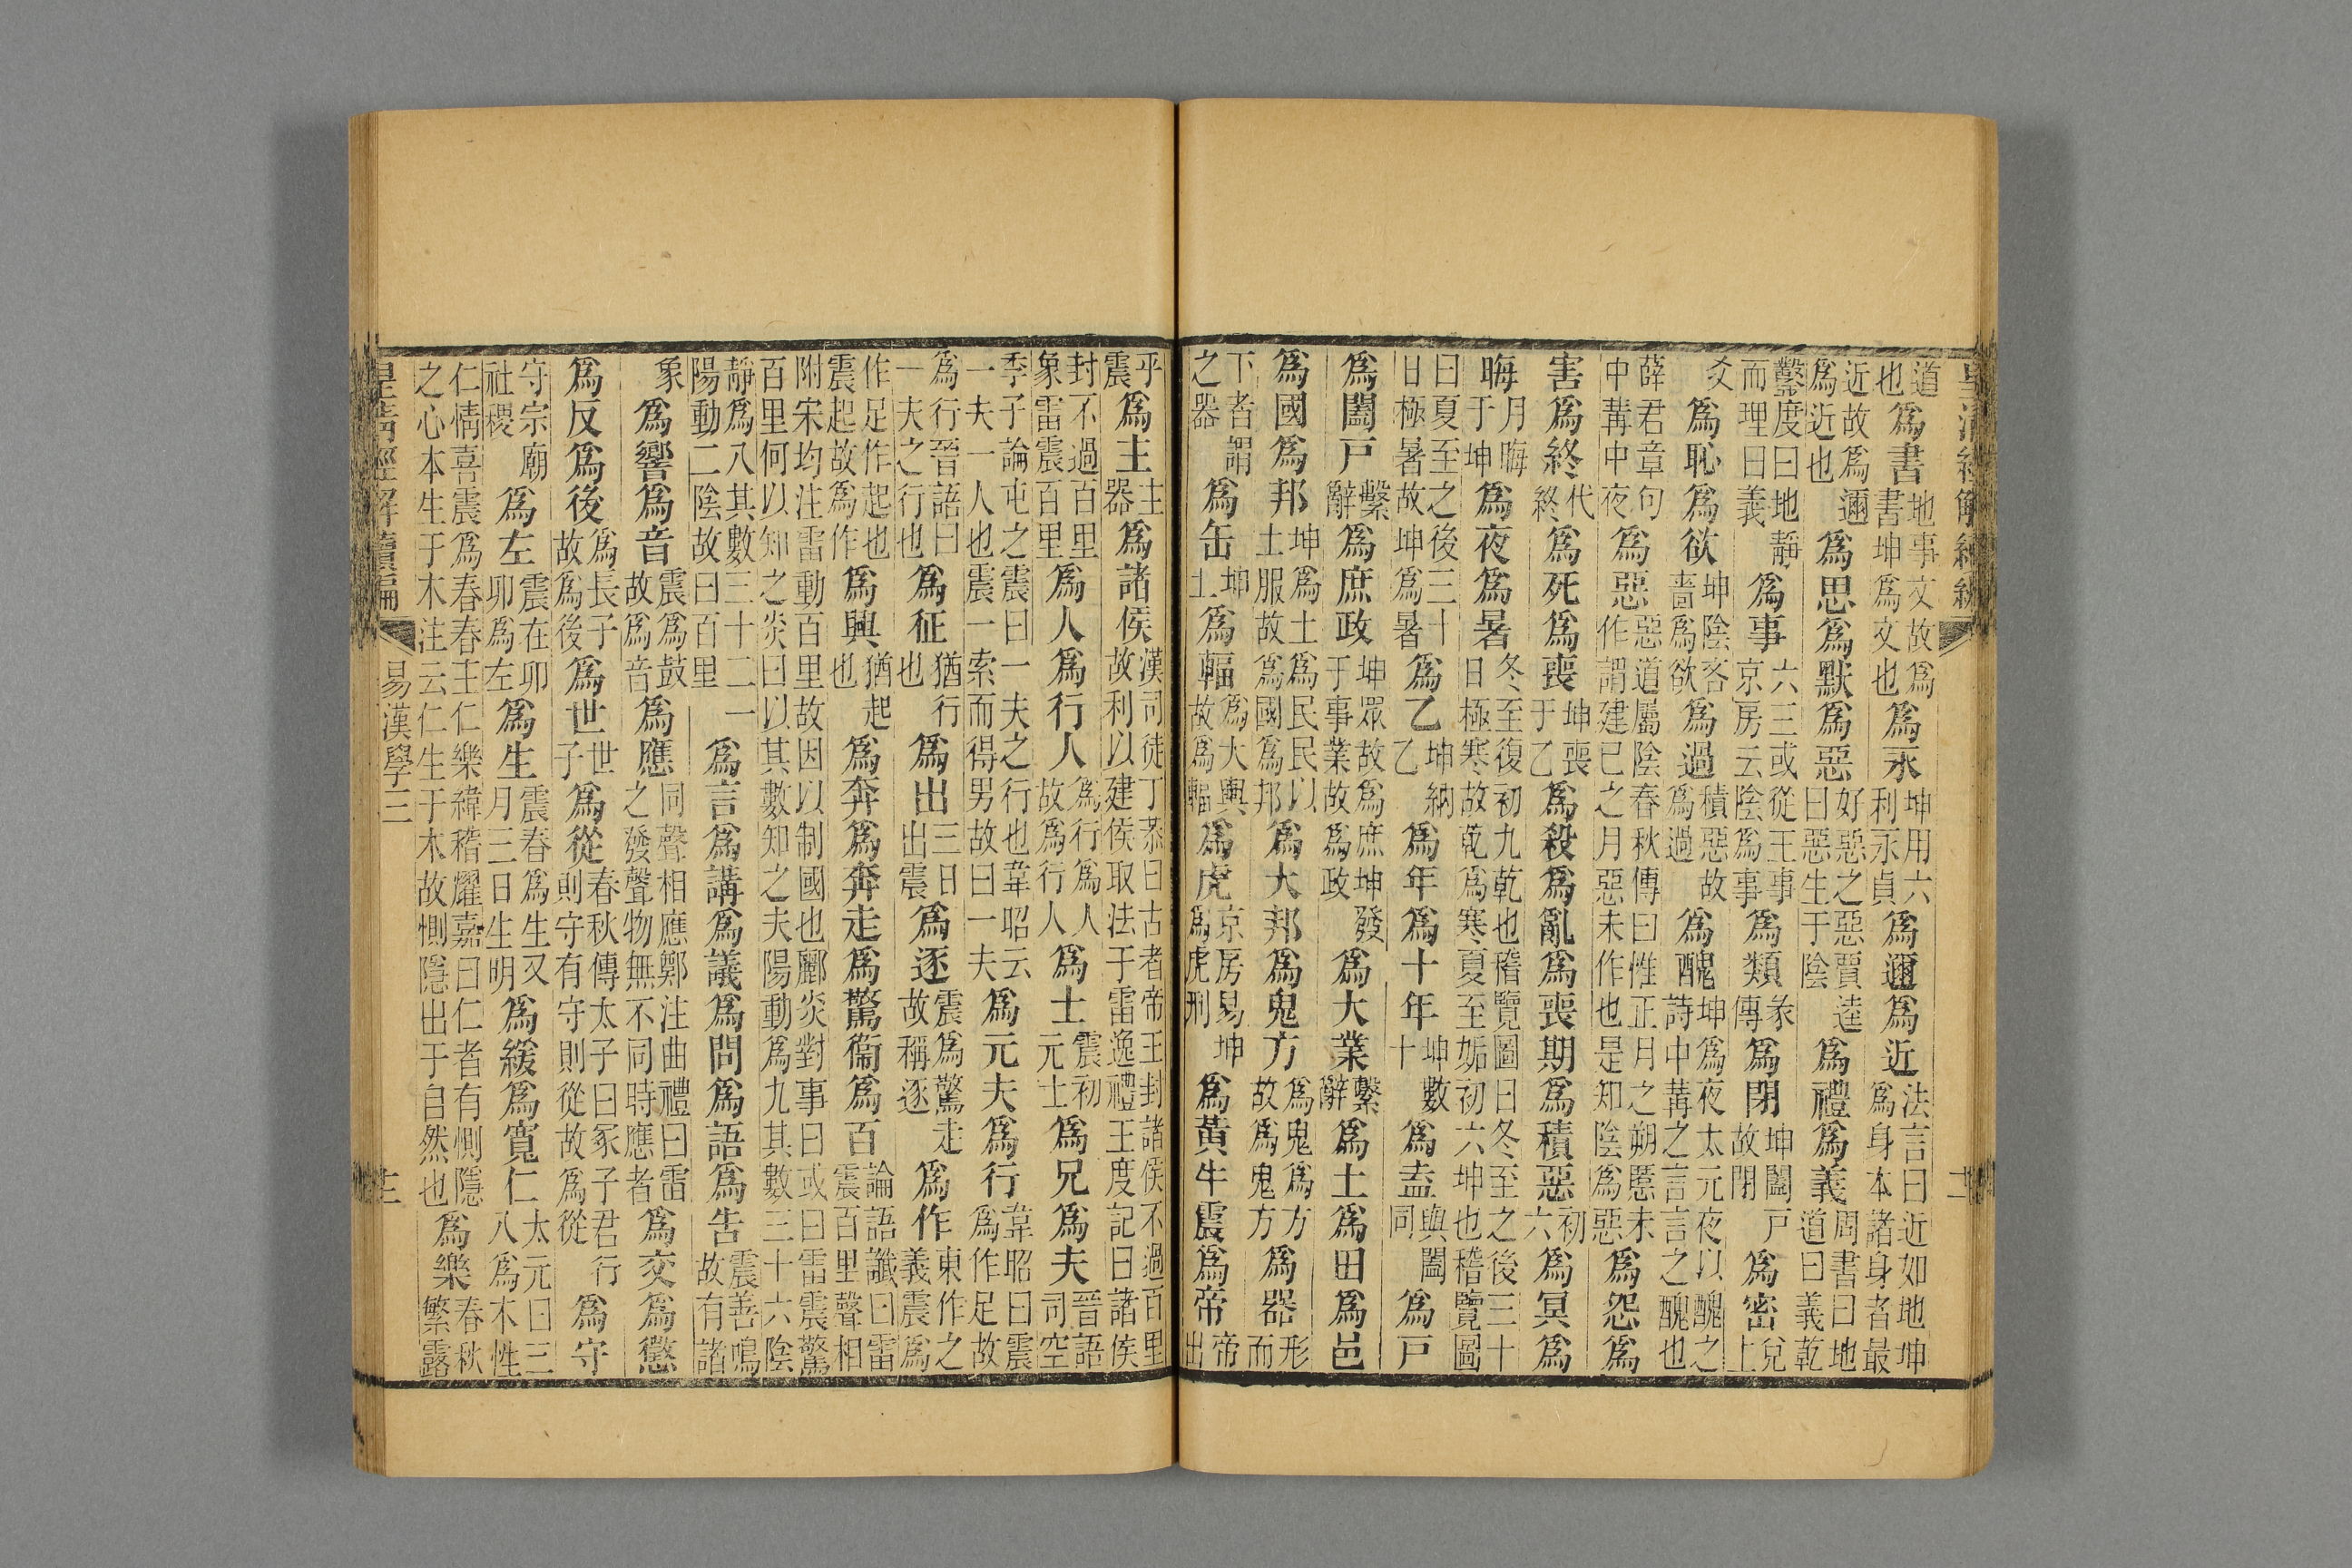 皇清經解續編
道也爲書地事文故爲書坤爲文也爲永坤用六利永貞爲邇爲近法言曰近如地坤爲身本諸身者最
近故爲邇爲近也爲思爲默爲惡好惡之惡賈逵曰惡生于陰爲禮爲義周書曰地道曰義乾
鑿度曰地靜而理曰義爲事六三或從王事京房云陰爲事爲類彖傳爲閉坤闔戸故閉爲密兌上
爻爲恥爲欲坤陰吝嗇爲欲爲過積惡故爲過爲醜坤爲夜太元夜以醜之詩中冓之言言之醜也
薛君章句中冓中夜爲惡惡道屬陰春秋傳曰惟正月之朔慝未作謂建已之月惡未作也是知陰爲惡爲怨爲
害爲終代終爲死爲喪坤喪于乙爲殺爲亂爲喪期爲積惡初六爲冥爲
晦月晦于坤爲夜爲暑冬至復初九乾也稽覽圖曰冬至之後三十日極寒故乾爲寒夏至姤初六坤也稽覽圖
曰夏至之後三十日極暑故坤爲暑爲乙坤納乙爲年爲十年坤數十爲盍與闔同爲戸
爲闔戸繫辭爲庶政坤眾故爲庶坤發于事業故爲政爲大業繫辭爲土爲田爲邑
爲國爲邦坤爲土爲民民以土服故爲國爲邦爲大邦爲鬼方爲鬼爲方故爲鬼方爲器形而
下者謂之器爲缶坤土爲輻爲大輿故爲輻爲虎京房易坤爲虎刑爲黃牛震爲帝帝出
乎震爲主主器爲諸侯漢司徒丁恭曰古者帝王封諸侯不過百里故利以建侯取法于雷逸禮王度記曰諸侯
封不過百里象雷震百里爲人爲行人爲行爲人故爲行人爲士震初元士爲兄爲夫晉語司空
季子論屯之震曰一夫之行也韋昭云一夫一人也震一索而得男故曰一夫爲元夫爲行韋昭曰震爲作足故
爲行晉語曰一夫之行也爲征猶行也爲出三日出震爲逐震爲驚走故稱逐爲作東作之義震爲
作足作起也震起故爲作爲興猶起也爲奔爲奔走爲驚衞爲百論語讖曰雷震百里聲相
附宋均注雷動百里故因以制國也酈炎對事曰或曰雷震驚百里何以知之炎曰以其數知之夫陽動爲九其數三十六陰
靜爲八其數三十二一陽動二陰故曰百里爲言爲講爲議爲問爲語爲告震善鳴故有諸
象爲響爲音震爲鼓故爲音爲應同聲相應鄭注曲禮曰雷之發聲物無不同時應者爲交爲懲
爲反爲後爲長子故爲後爲世世子爲從春秋傳太子曰冢子君行則守有守則從故爲從爲守
守宗廟社稷爲左震在卯卯爲左爲生震春爲生又月三日生明爲緩爲寬仁太元曰三八爲木性
仁情喜震爲春春王仁樂緯稽耀嘉曰仁者有惻隱之心本生于木注云仁生于木故惻隱出于自然也爲樂春秋繁露
皇清經解續編 易漢學三